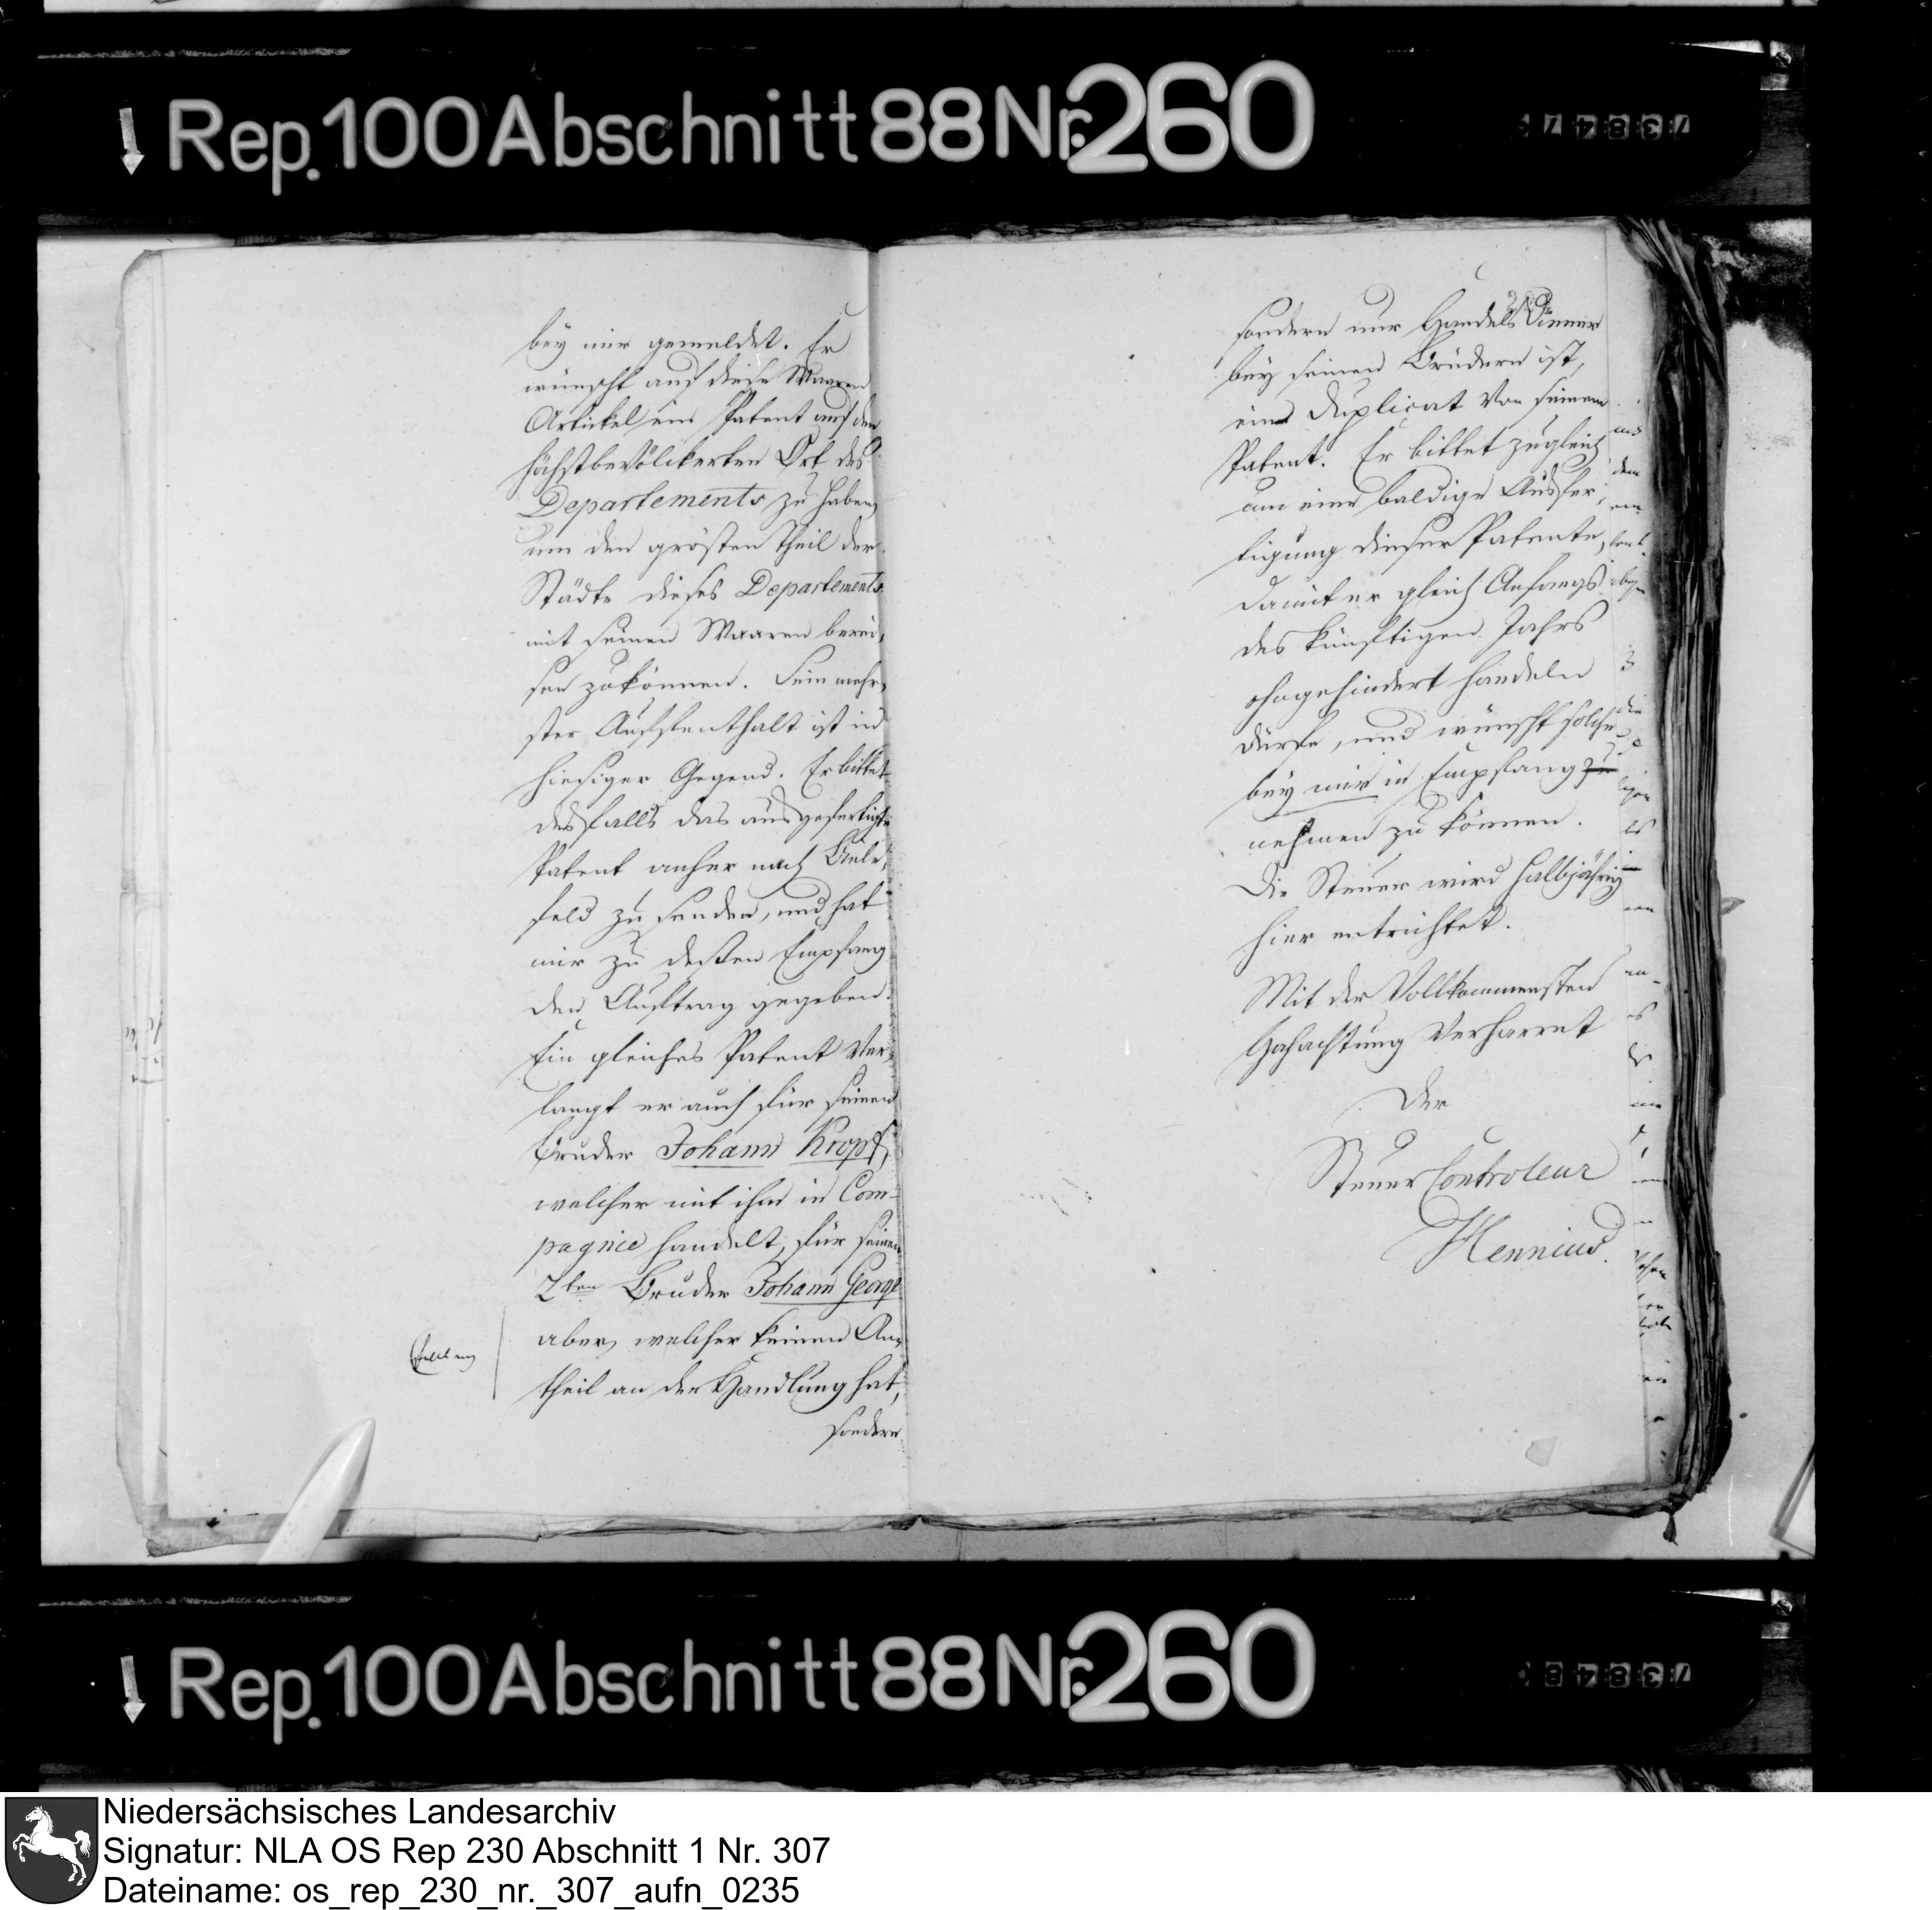 Rep. 100 Abschnitt 88 Nr. 260
73847
bey mir gemeldet. Er
wünscht auf diese Waaren
Artickel ein Patent auf den
höchstbevölckerten Ort des
Departements zu haben,
um den grösten Theil der
Städte dieses Departements
mit seinen Waaren berei,
sen zukönnen. Sein mehr,
ster Auffenthalt ist in
hiesiger Gegend. Er bittet
desfalls das ausgefertigte
Patent anher nach
feld zu senden, und hat
mir zu deßen Empfang
den Auftrag gegeben.
Ein gleiches Patent ver,
langt er auch für seinen
Bruder Johann Kropf,
welcher mit ihm in Com-
pagnie handelt, für seinen
2ten Bruder Johann George
aber, welcher keinen An,
theil an der Handlung hat,
sondern
sondern nur Handels Diener
bey seinen Brüdern ist,
ein Duplicat von seinem
Patent. Er bittet zugleich
um eine baldige Ausfer,
tigung dieser Patente,
damit er gleich Anfangs
des künftigen Jahrs
ohngehindert handeln
dürfe, und wünscht solche
bey mir in Empfang zu
nehmen zu können.
Die Steuer wird halbjährig
hier entrichtet.
Mit der Vollkommensten
Hochachtung verharret
Der
Steuer Controleur
Hennius.
Rep. 100 Abschnitt 88 Nr. 260
73848
Niedersächsisches Landesarchiv
Signatur: NLA OS Rep 230 Abschnitt 1 Nr. 307
Dateiname: os_rep_230_nr._307_aufn_0235